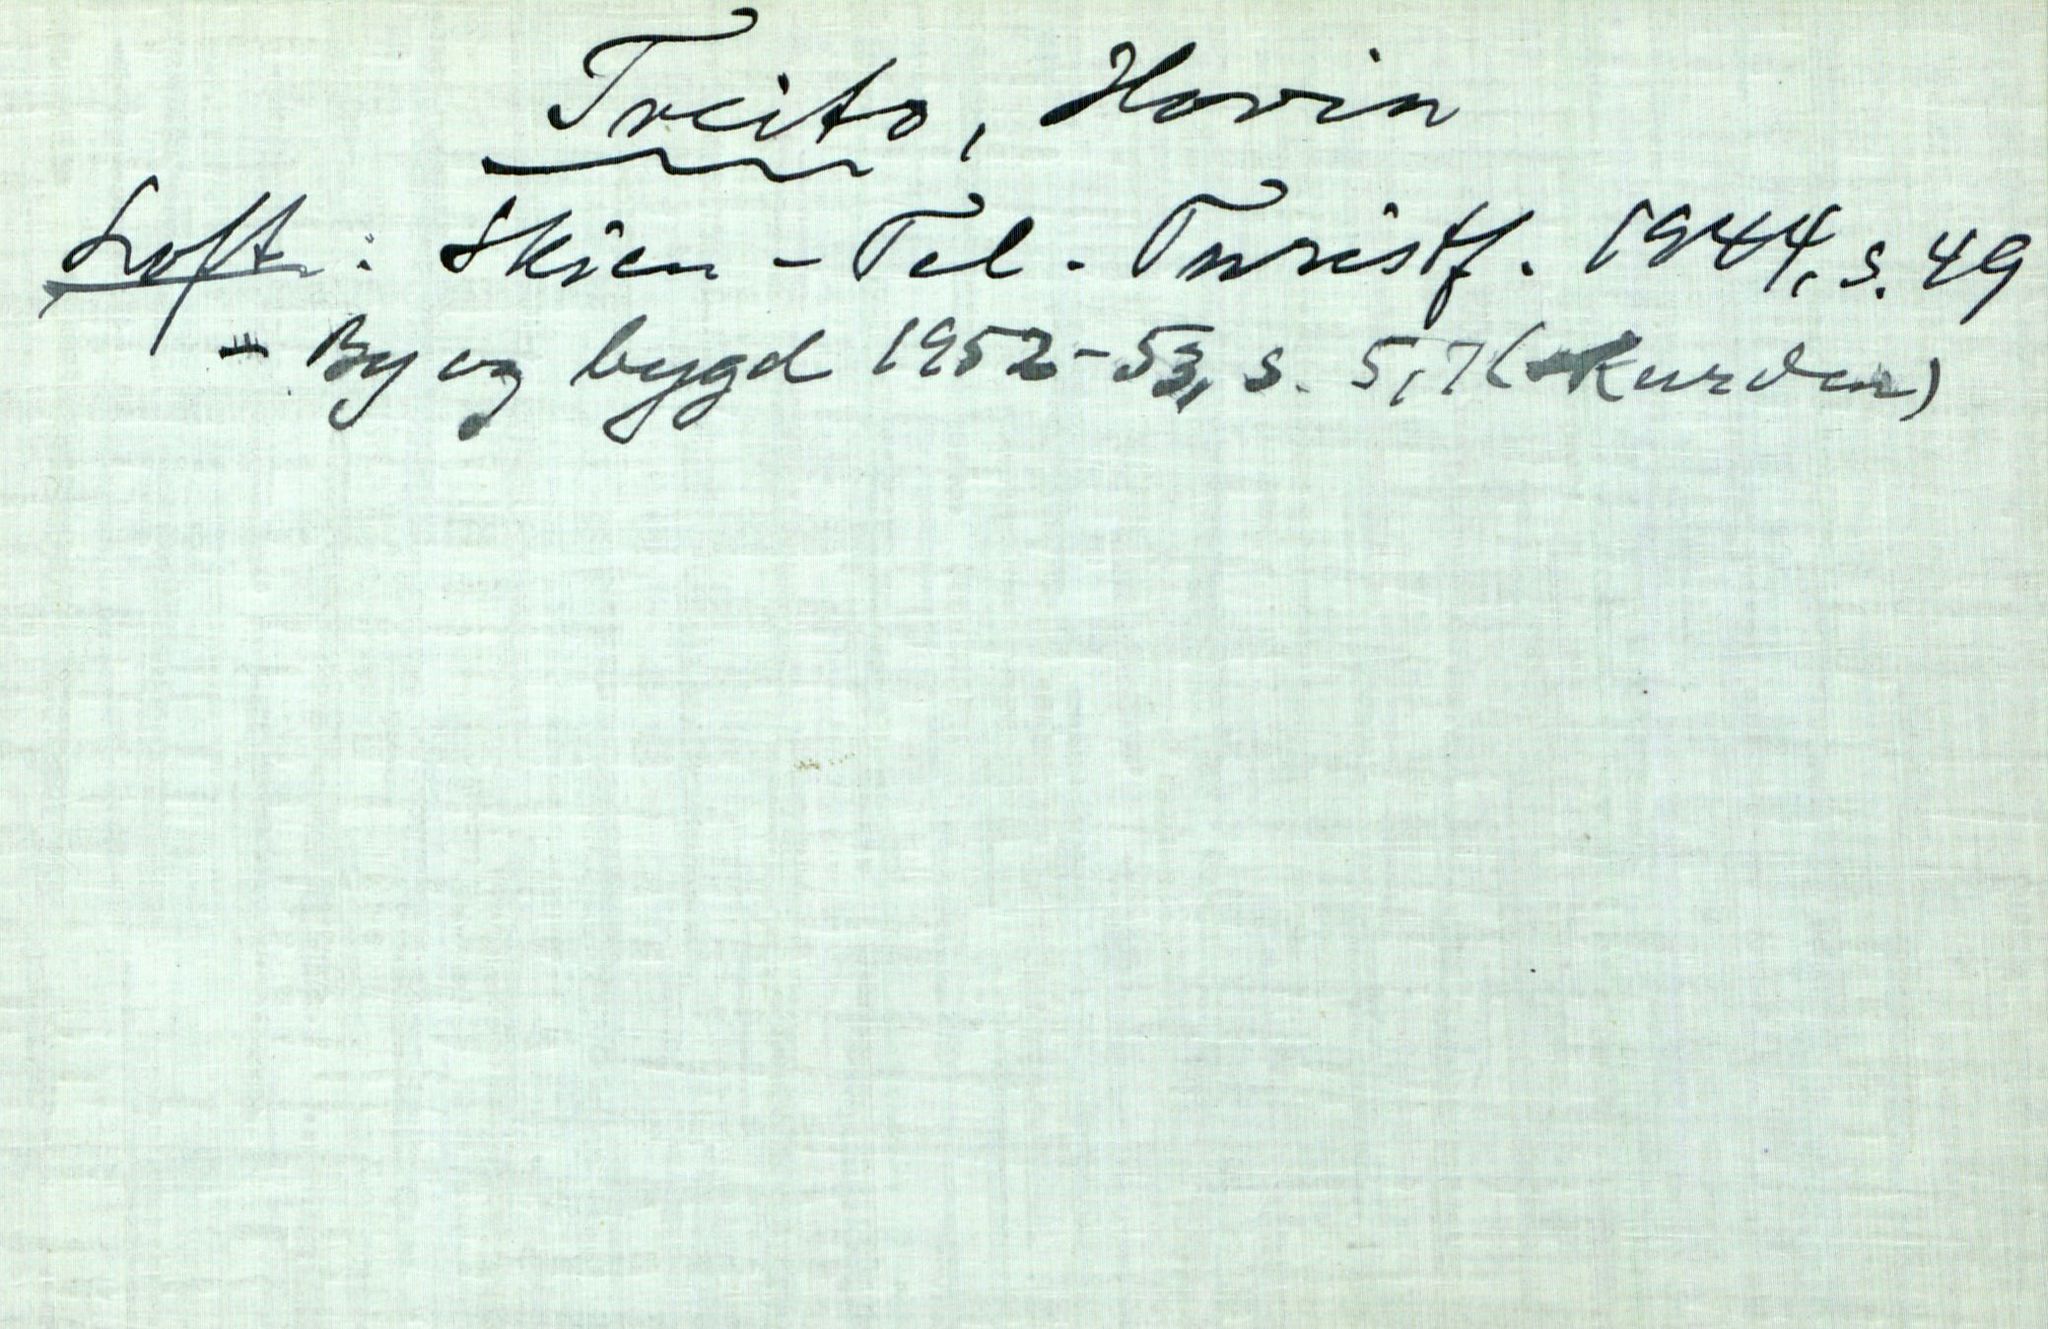 Treito, Hovin
Loft: Skien-Tel-Turistf. 1944, s. 49
- By og bygd 1952-53, s. 5,7 (skurden)